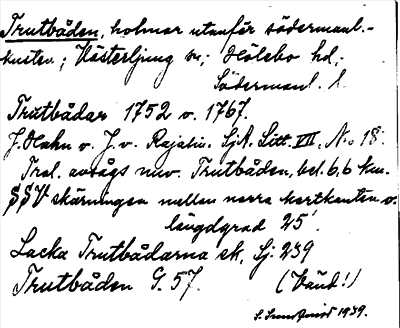 Trutbåden, holmar utanför södermanl.-
kusten; Västerljung sn; Hölebo hd;
Södermanl. l.
Trutbådar 1752 o. 1767.
J. Hahn o. J. v. Rajalin. SjK. Litt. VII, No 18.
Trol. avsågs nuv. Trutbåden, bel. 6,6 km.
SSV skärningen mellan norra kartkanten o.
längdgrad 25'.
Lacka Trutbådarna ek. Sj: 239
Trutbåden G. 57. (Vänd!)
1939.